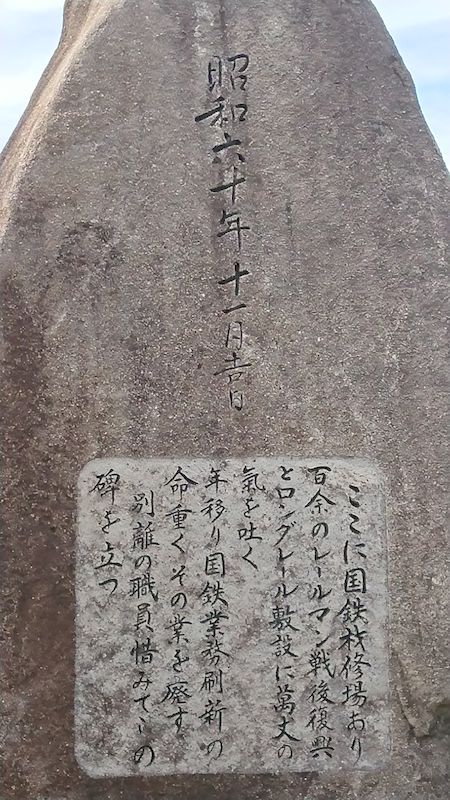 昭和六十年十一月吉日
ここに国鉄材修場あり
百余のレールマン戦後復興
とロングレール敷設に萬丈の
氣を吐く
年移り国鉄業務刷新の
命重くその業を廃す
別離の職員惜みてこの
碑を立つ